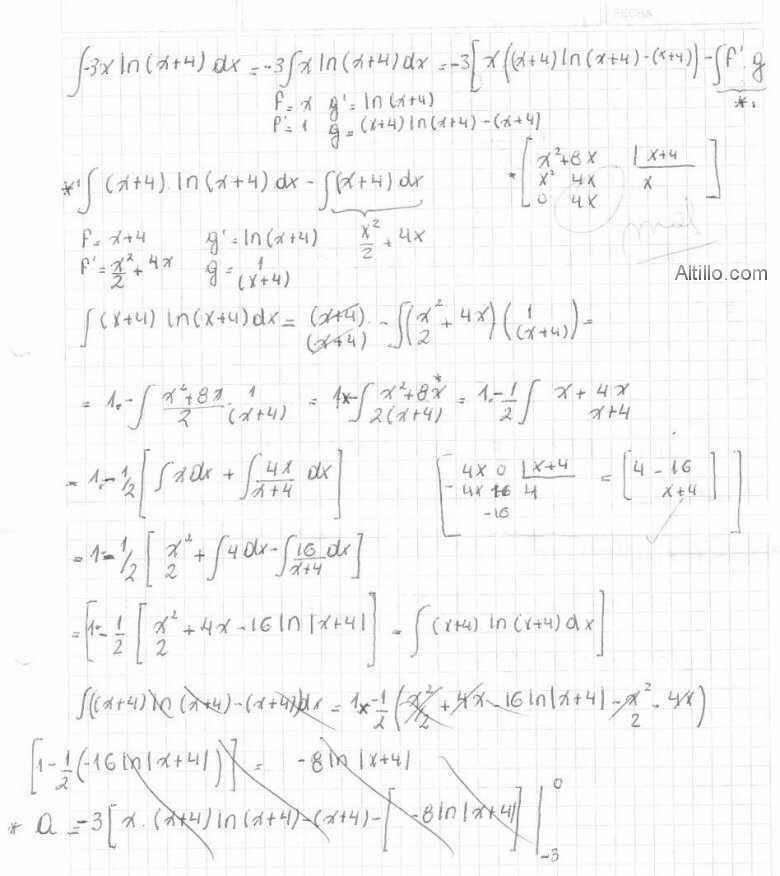 FECHA
∫-3x ln(x+4) dx = -3∫x ln(x+4) dx = -3[x((x+4) ln(x+4) - (x+4)) - ∫f'.g
f = x g' = ln(x+4) *1
f' = 1 g = (x+4) ln(x+4) - (x+4)
*[x²+8x |x+4
x² 4x x
0 4x]
*1 ∫(x+4) ln(x+4) dx - ∫(x+4) dx
f = x+4 g' = ln(x+4) x²/2 + 4x
mal
f' = x²/2 + 4x g = 1/(x+4)
Altillo.com
∫(x+4) ln(x+4) dx = (x+4)/(x+4) - ∫(x²/2 + 4x)(1/(x+4)) =
= 1 - ∫ (x²+8x)/2 . 1/(x+4) = 1x - ∫ (x²+8x)*/2(x+4) = 1 - 1/2 ∫ x + 4x/x+4
= 1 - 1/2 [∫x dx + ∫ 4x/x+4 dx]
[4x 0 |x+4
-4x 16 4
-16 = [4 - 16/x+4]]
= 1 - 1/2 [x²/2 + ∫4 dx - ∫ 16/x+4 dx]
= [1 - 1/2 [x²/2 + 4x - 16 ln|x+4|] = ∫(x+4) ln(x+4) dx]
∫((x+4) ln(x+4) - (x+4)) dx = 1x - 1/2 (x²/2 + 4x - 16 ln|x+4| - x²/2 - 4x)
[1 - 1/2 (-16 ln|x+4|)] = -8 ln|x+4|
* a = -3[x.(x+4) ln(x+4) - (x+4) - [-8 ln|x+4|]] |0 -3